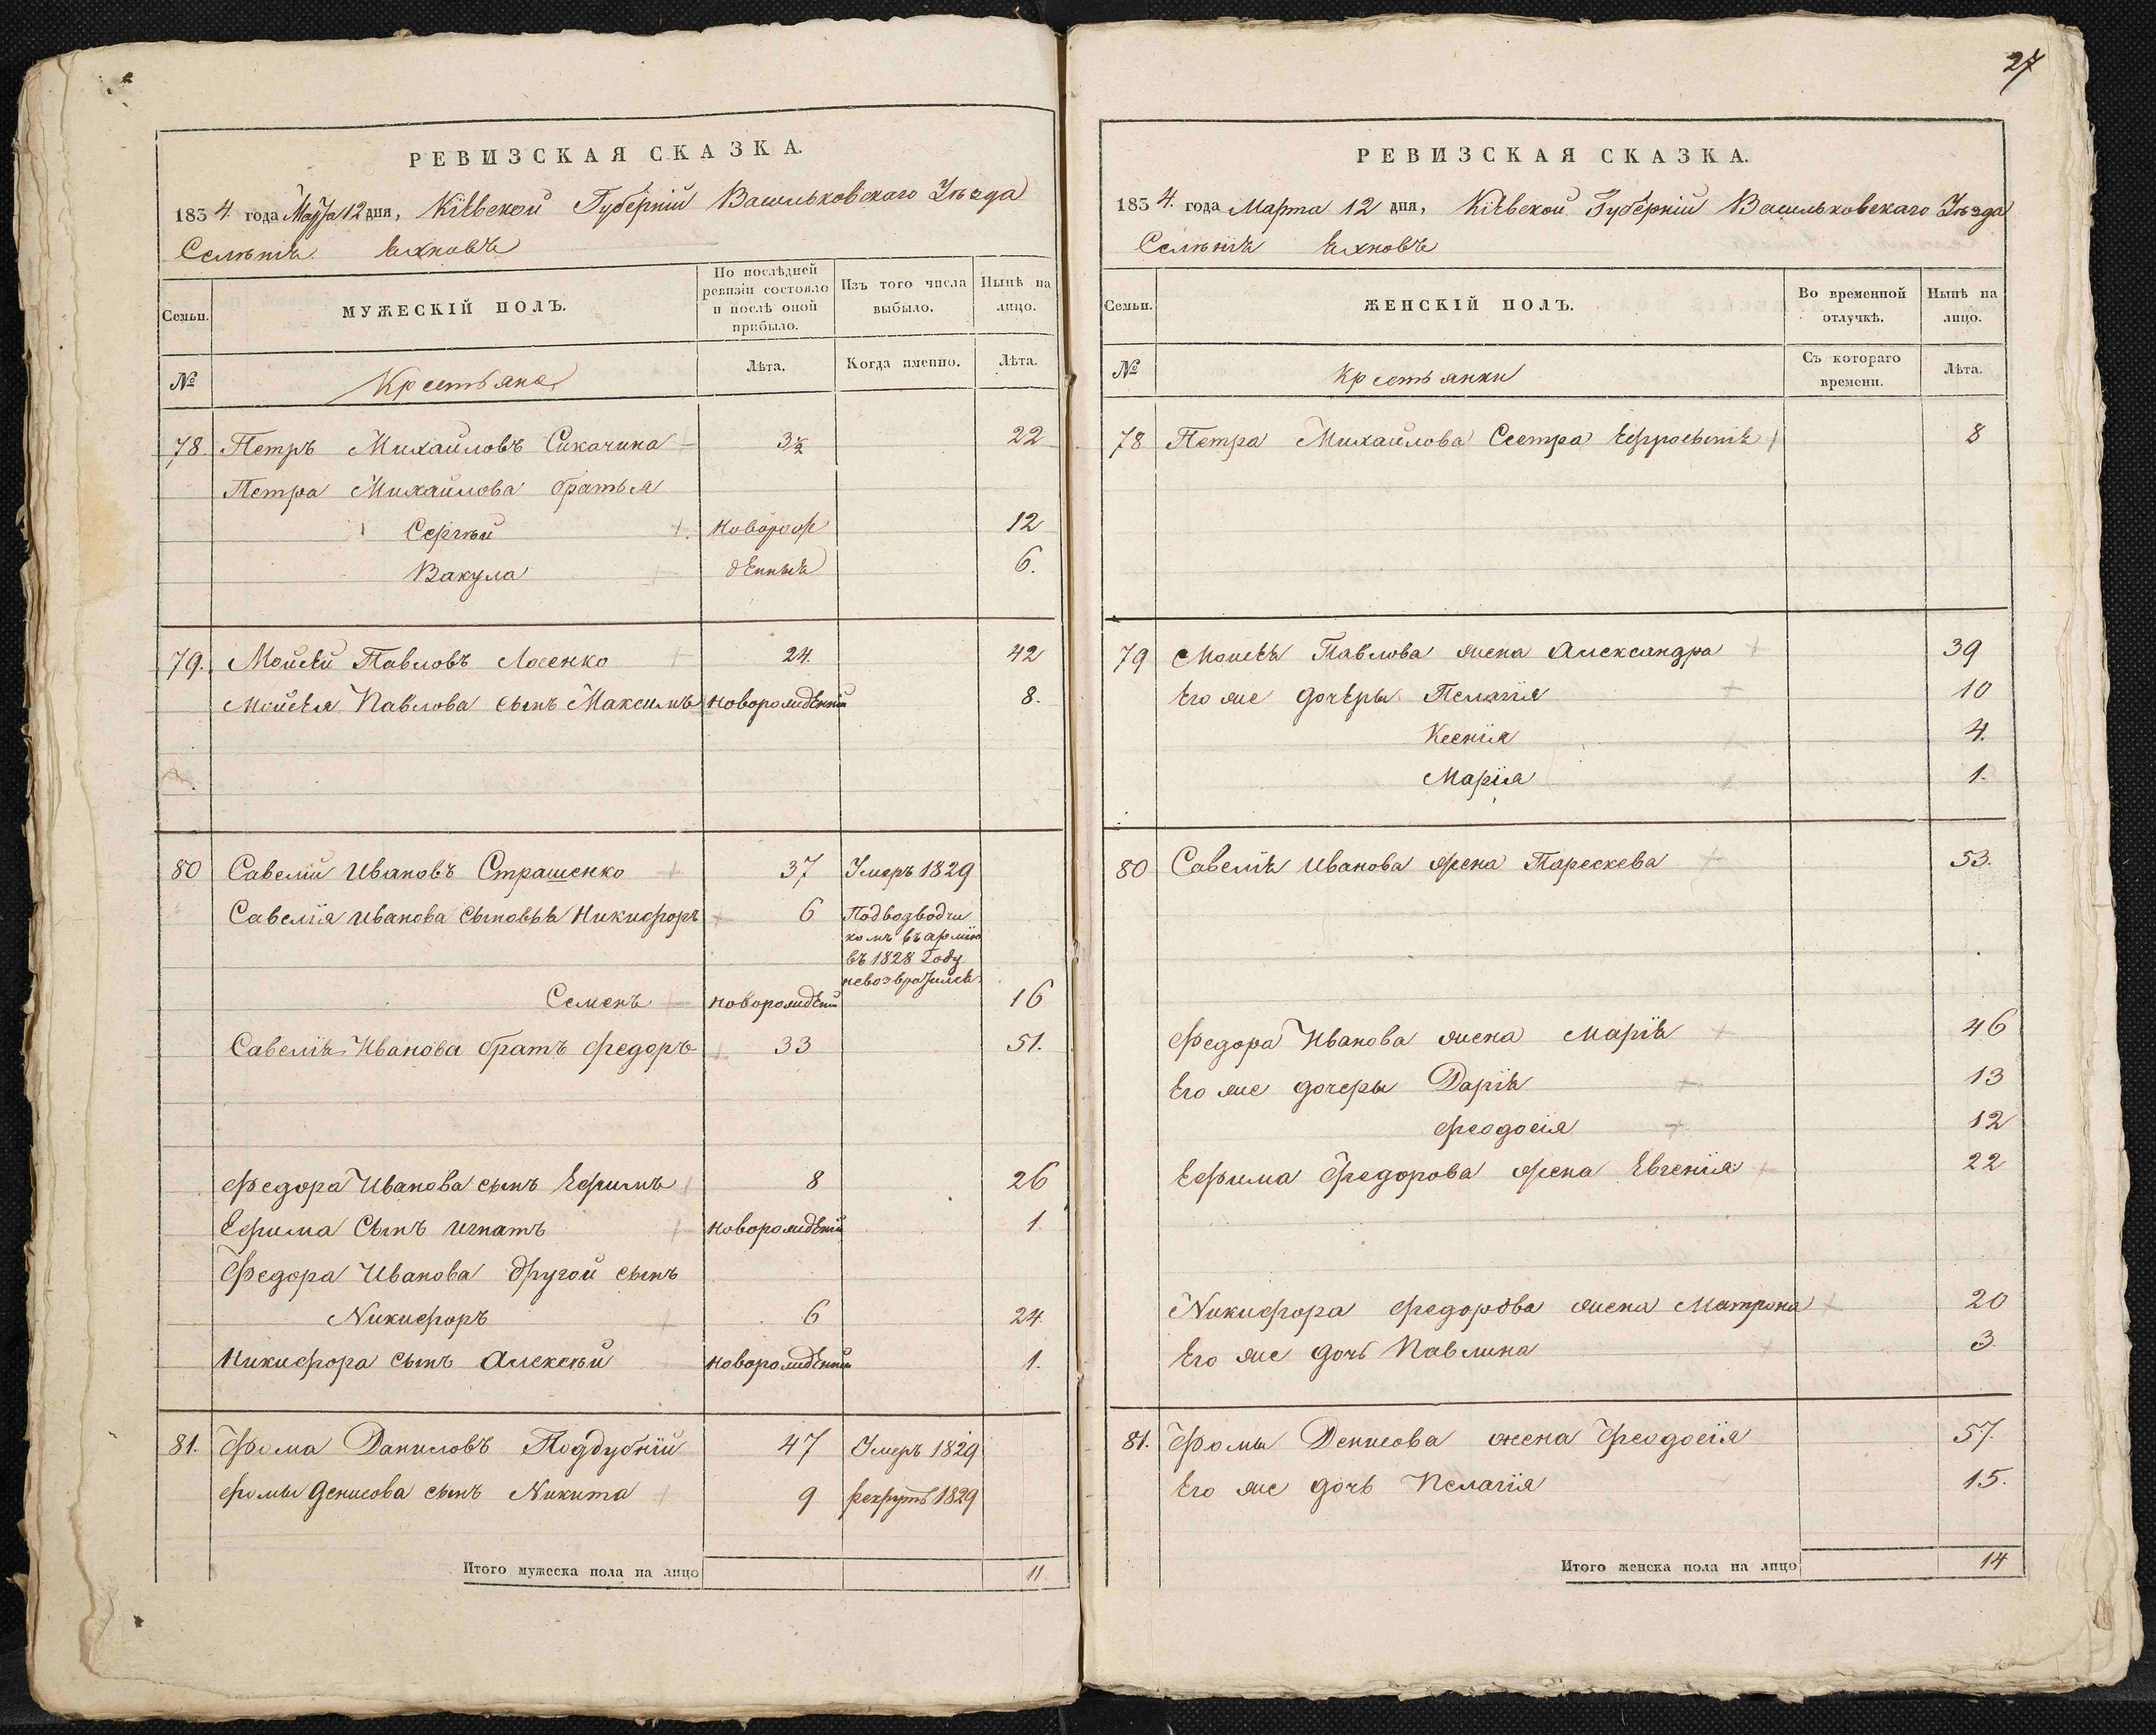 РЕВИЗСКАЯ СКАЗКА.
1834. года Марта 12 дня, Кіевской Губерніи Васильковского Уѣзда
Селѣнія Яхновъ
Семьи. МУЖЕСКІЙ ПОЛЪ. По послѣдней ревизіи состояло и послѣ оной прибыло. Изъ того числа выбыло. Нынѣ на лицо.
№ Крестьяне Лѣта. Когда именно. Лѣта.
78. Петръ Михайловъ Сикачина 3½ 22
Петра Михайлова братья
Сергѣй новорож 12
Вакула денныя 6.
79. Мойсей Павловъ Лосенко 24. 42
Мойсея Павлова сынъ Максимъ новорожденный 8.
80 Савелій Ивановъ Страшенко 37 Умеръ 1829
Савелія Иванова сыновья Никифоръ 6 Подводчи
комъ въ армію
въ 1828 Году
невозвратился
Семенъ новорожден 16
Савелія Иванова братъ Федоръ 33 51.
Федора Иванова сынъ Ефимъ 8 26
Ефима Сынъ Игнатъ новорожденій 1.
Федора Иванова другой сынъ
Никифоръ 6 24.
Никифора сынъ Алексѣй новорожденный 1.
81. Фома Даниловъ Поддубній 47 Умеръ 1829
Фомы Денисова сынъ Никита 9 рекрутъ 1829
Итого мужеска пола на лицо 11.
27
РЕВИЗСКАЯ СКАЗКА.
1834. года Марта 12 дня, Кіевской Губерніи Васильковскаго Уѣзда
Селѣнія Яхновъ
Семьи. ЖЕНСКІЙ ПОЛЪ. Во временной отлучкѣ. Нынѣ на лицо.
№ Крестьянки Съ котораго времени. Лѣта.
78 Петра Михайлова Сестра Ефросынія 8
79 Моисея Павлова жена Александра 39
Его же дочеры Пелагія 10
Ксенія 4.
Марія 1.
80 Савелія Иванова жена Параскева 53.
Федора Иванова жена Марія 46
Его же дочеры Дарія 13
Феодосія 12
Ефима Федорова жена Евгенія 22
Никифора Федорова жена Матрона 20
Его же дочь Павлина 3.
81. Фомы Денисова жена Феодосія 57.
Его же дочь Пелагія 15.
Итого женска пола на лицо 14